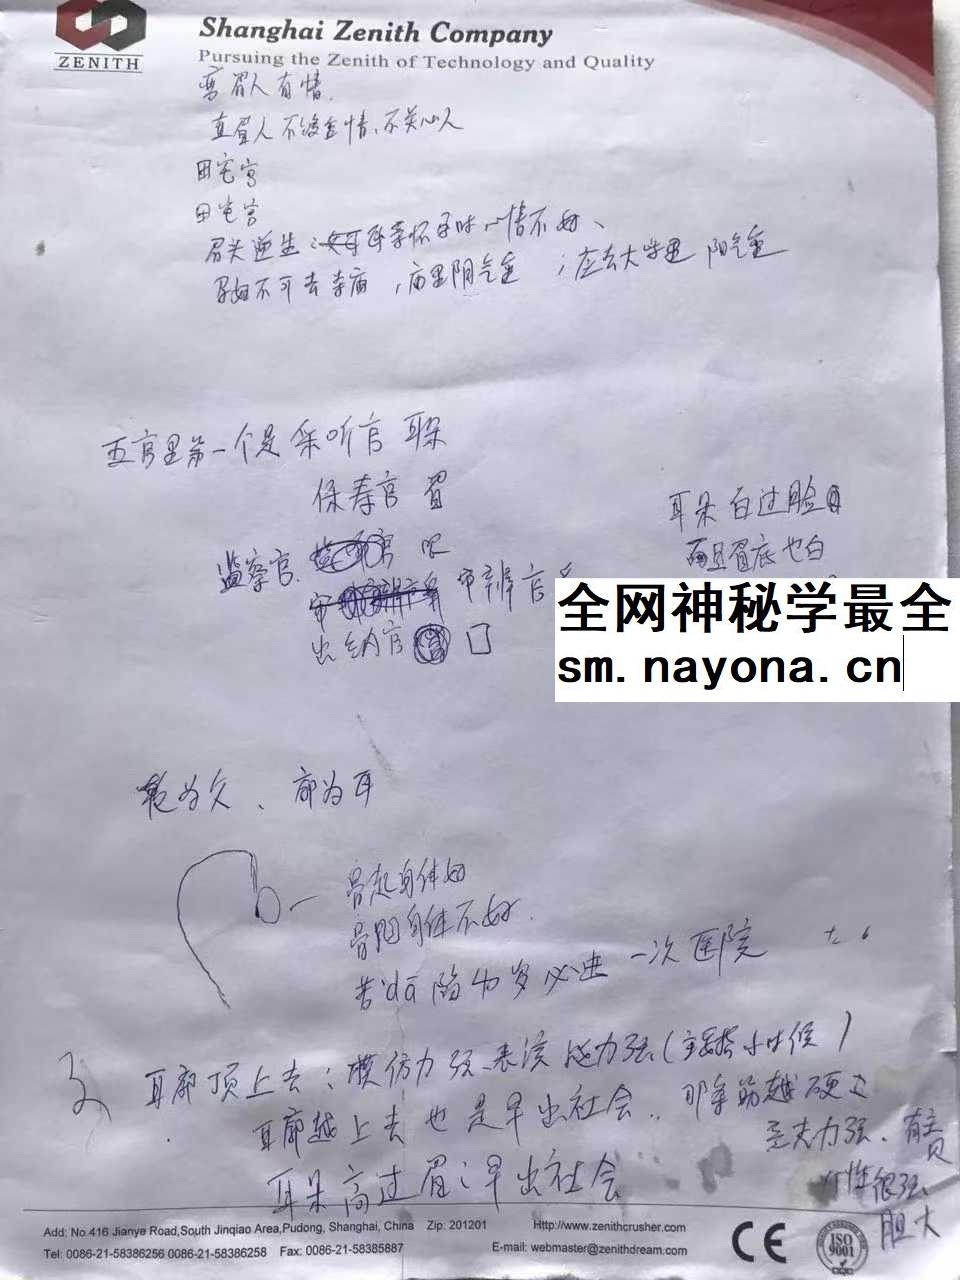 ZENITH
Shanghai Zenith Company
Pursuing the Zenith of Technology and Quality
弯眉人有情.
直眉人不注重情、不关心人
田宅宫
田宅宫
眉头逆生:母亲怀孕时心情不好、
孕妇不可去寺庙,庙里阴气重;应去大学里 阳气重
五官里第一个是 采听官 耳朵
保寿官 眉
监察官. 眼
审辨官
出纳官 口
耳朵白过脸
而且眉底也白
全网神秘学最全
sm.nayona.cn
为父、廓为耳
骨起身体好
骨陷身体不好.
若dā陷 岁必进一次医院
耳廓顶上去:模仿力强.表演能力强(主要指小时候)
耳廓越上去也是早出社会.. 耳朵筋越硬
耳朵高过眉:早出社会
力强、有主见
个性很强、
胆大
Add: No.416 Jianye Road,South Jinqiao Area,Pudong, Shanghai, China Zip: 201201 Http://www.zenithcrusher.com
Tel: 0086-21-58386256 0086-21-58386258 Fax: 0086-21-58385887 E-mail: webmaster@zenithdream.com
CE
ISO
9001